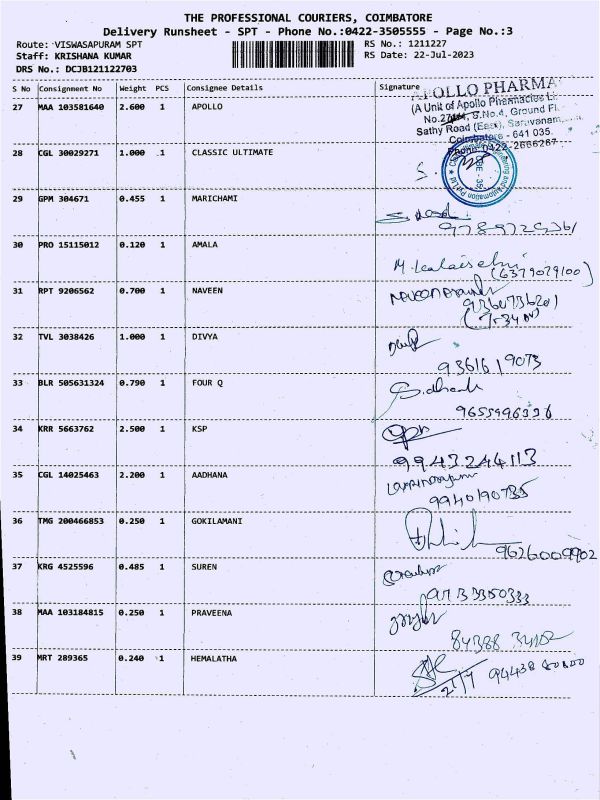 THE PROFESSIONAL COURIERS, COIMBATORE
Delivery Runsheet - SPT - Phone No.:0422-3505555 - Page No.:3
Route: VISWASAPURAM SPT RS No.: 1211227
Staff: KRISHANA KUMAR RS Date: 22-Jul-2023
DRS No.: DCJB121122703
S No Consignment No Weight PCS Consignee Details Signature
27 MAA 103581640 2.600 1 APOLLO
APOLLO PHARMA
(A Unit of Apollo Pharmacies
S.No.4, Ground
Sathy Road (East), Saravanam
Coimbatore - 641 035.
Phone 0422-2666267
28 CGL 30029271 1.000 1 CLASSIC ULTIMATE
29 GPM 304671 0.455 1 MARICHAMI
30 PRO 15115012 0.120 1 AMALA
M. Kalaiselvi
(6379079100)
31 RPT 9206562 0.700 1 NAVEEN
9360736201
32 TVL 3038426 1.000 1 DIVYA
9361619073
33 BLR 505631324 0.790 1 FOUR Q
9655996336
34 KRR 5663762 2.500 1 KSP
9943244113
35 CGL 14025463 2.200 1 AADHANA
9940190735
36 TMG 200466853 0.250 1 GOKILAMANI
9626000902
37 KRG 4525596 0.485 1 SUREN
38 MAA 103184815 0.250 1 PRAVEENA
39 MRT 289365 0.240 1 HEMALATHA